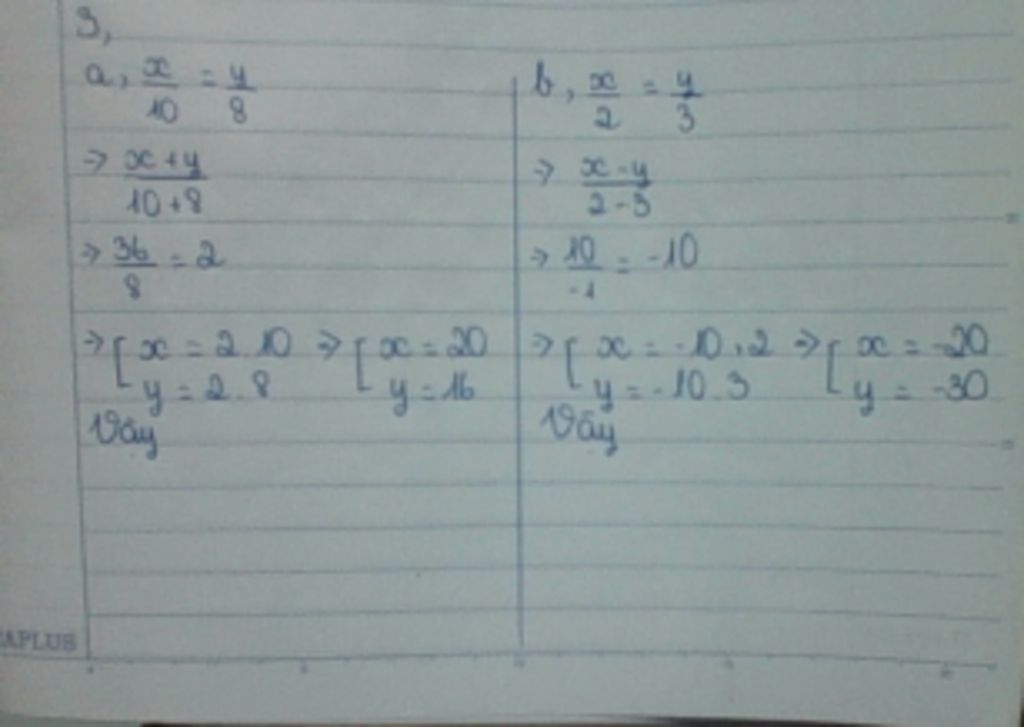 3,
a, x/10 = y/8
=> x+y/10+8
=> 36/8 = 2
=> [ x = 2.10 => [ x = 20
y = 2.8 y = 16
Vậy
b, x/2 = y/3
=> x-y/2-3
=> 10/-1 = -10
=> [ x = -10.2 => [ x = -20
y = -10.3 y = -30
Vậy
APLUS